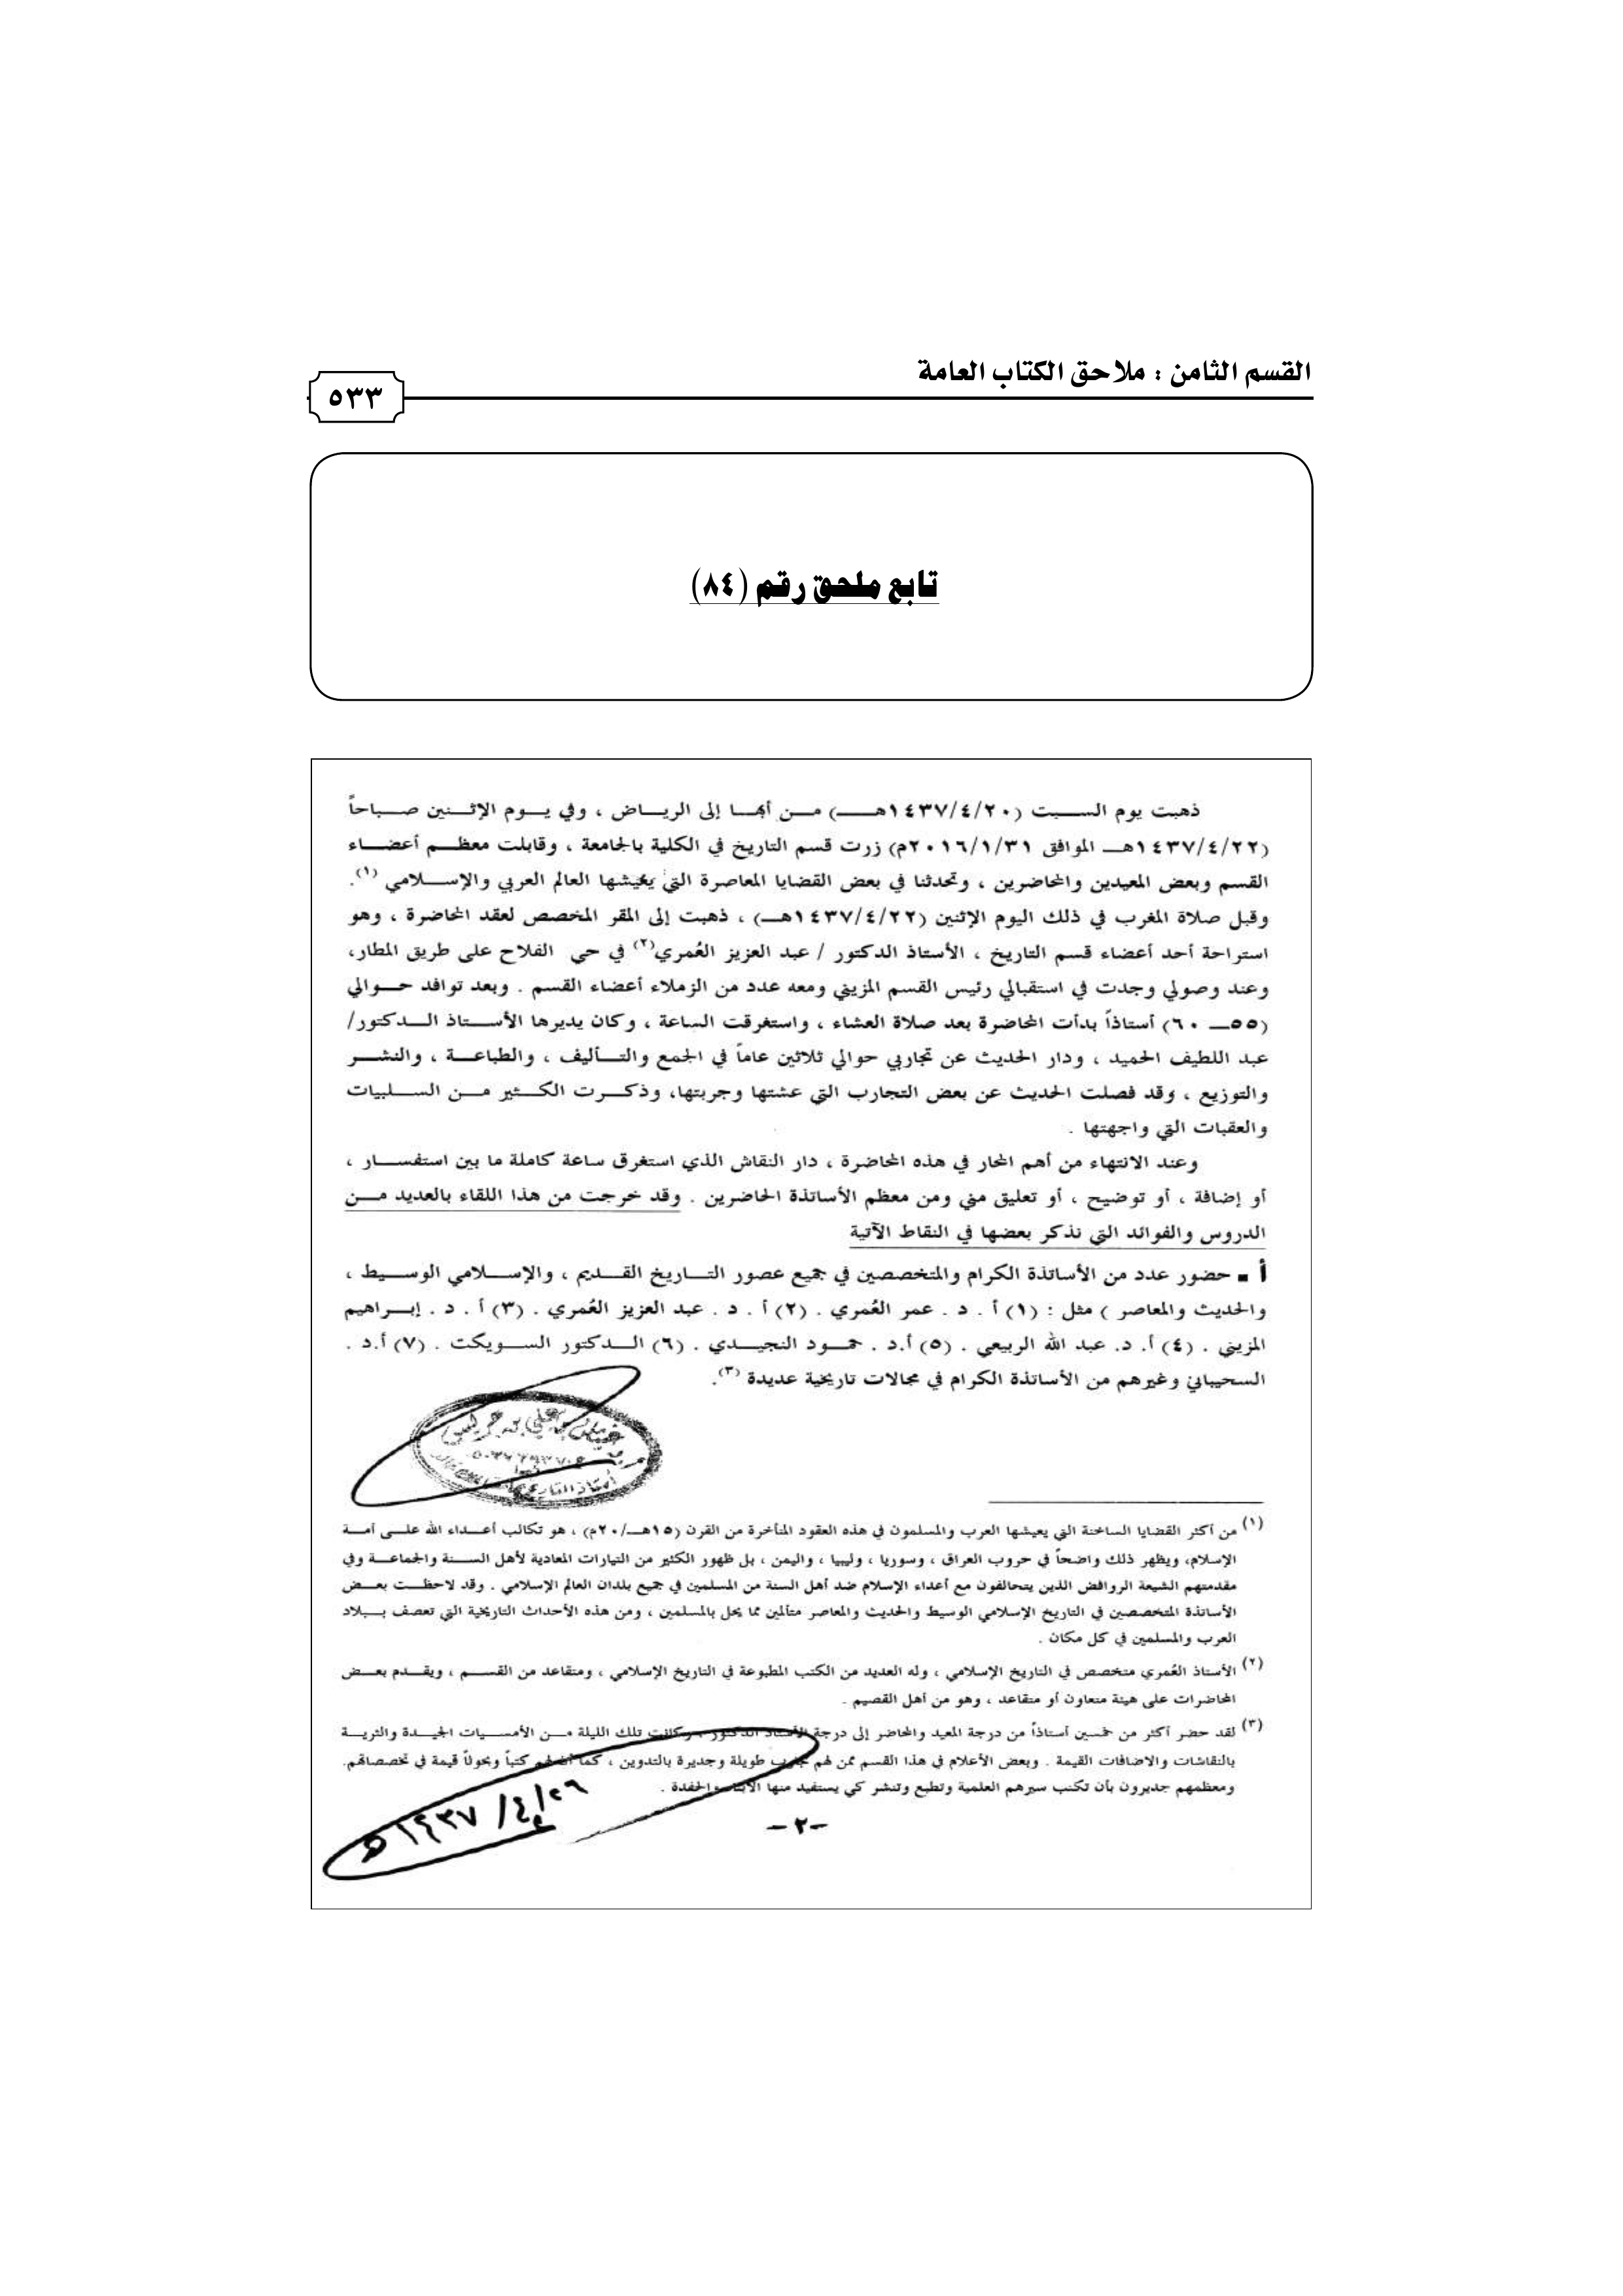 القسم الثامن : ملاحق الكتاب العامة
٥٣٣
تابع ملحق رقم (٨٤)
ذهبت يوم السبت (١٤٣٧/٤/٢٠هـ) من أبها إلى الرياض ، وفي يوم الإثنين صباحاً
(١٤٣٧/٤/٢٢هـ الموافق ٢٠١٦/١/٣١م) زرت قسم التاريخ في الكلية بالجامعة ، وقابلت معظم أعضاء
القسم وبعض المعيدين والمحاضرين ، وتحدثنا في بعض القضايا المعاصرة التي يعيشها العالم العربي والإسلامي (١).
وقبل صلاة المغرب في ذلك اليوم الإثنين (١٤٣٧/٤/٢٢هـ) ، ذهبت إلى المقر المخصص لعقد المحاضرة ، وهو
استراحة أحد أعضاء قسم التاريخ ، الأستاذ الدكتور / عبد العزيز العُمري(٢) في حي الفلاح على طريق المطار،
وعند وصولي وجدت في استقبالي رئيس القسم المزيني ومعه عدد من الزملاء أعضاء القسم . وبعد توافد حوالي
(٥٥ـ ٦٠) أستاذاً بدأت المحاضرة بعد صلاة العشاء ، واستغرقت الساعة ، وكان يديرها الأستاذ الدكتور/
عبد اللطيف الحميد ، ودار الحديث عن تجاربي حوالي ثلاثين عاماً في الجمع والتأليف ، والطباعة ، والنشر
والتوزيع ، وقد فصلت الحديث عن بعض التجارب التي عشتها وجربتها، وذكرت الكثير من السلبيات
والعقبات التي واجهتها .
وعند الانتهاء من أهم المحار في هذه المحاضرة ، دار النقاش الذي استغرق ساعة كاملة ما بين استفسار ،
أو إضافة ، أو توضيح ، أو تعليق مني ومن معظم الأساتذة الحاضرين . وقد خرجت من هذا اللقاء بالعديد من
الدروس والفوائد التي نذكر بعضها في النقاط الآتية
أ ـ حضور عدد من الأساتذة الكرام والمتخصصين في جميع عصور التاريخ القديم ، والإسلامي الوسيط ،
والحديث والمعاصر ) مثل : (١) أ . د . عمر العُمري . (٢) أ . د . عبد العزيز العُمري . (٣) أ . د . إبراهيم
المزيني . (٤) أ. د. عبد الله الربيعي . (٥) أ.د . حمود النجيدي . (٦) الدكتور السويكت . (٧) أ.د .
السحيباني وغيرهم من الأساتذة الكرام في مجالات تاريخية عديدة (٣).
(١) من أكثر القضايا الساخنة التي يعيشها العرب والمسلمون في هذه العقود المتأخرة من القرن (١٥هـ/٢٠م) ، هو تكالب أعداء الله على أمة
الإسلام، ويظهر ذلك واضحاً في حروب العراق ، وسوريا ، وليبيا ، واليمن ، بل ظهور الكثير من التيارات المعادية لأهل السنة والجماعة وفي
مقدمتهم الشيعة الروافض الذين يتحالفون مع أعداء الإسلام ضد أهل السنة من المسلمين في جميع بلدان العالم الإسلامي . وقد لاحظت بعض
الأساتذة المتخصصين في التاريخ الإسلامي الوسيط والحديث والمعاصر متألمين مما يحل بالمسلمين ، ومن هذه الأحداث التاريخية التي تعصف ببلاد
العرب والمسلمين في كل مكان .
(٢) الأستاذ العُمري متخصص في التاريخ الإسلامي ، وله العديد من الكتب المطبوعة في التاريخ الإسلامي ، ومتقاعد من القسم ، ويقدم بعض
المحاضرات على هيئة متعاون أو متقاعد ، وهو من أهل القصيم .
(٣) لقد حضر أكثر من خمسين أستاذاً من درجة المعيد والمحاضر إلى درجة الأستاذ الدكتور ، وكانت تلك الليلة من الأمسيات الجيدة والثرية
بالنقاشات والاضافات القيمة . وبعض الأعلام في هذا القسم ممن لهم تجارب طويلة وجديرة بالتدوين ، كما أن لهم كتباً وبحوثاً قيمة في تخصصاتهم.
ومعظمهم جديرون بأن تكتب سيرهم العلمية وتطبع وتنشر كي يستفيد منها الأبناء والحفدة .
-٢-
١٤٣٧/٤/٢٦هـ